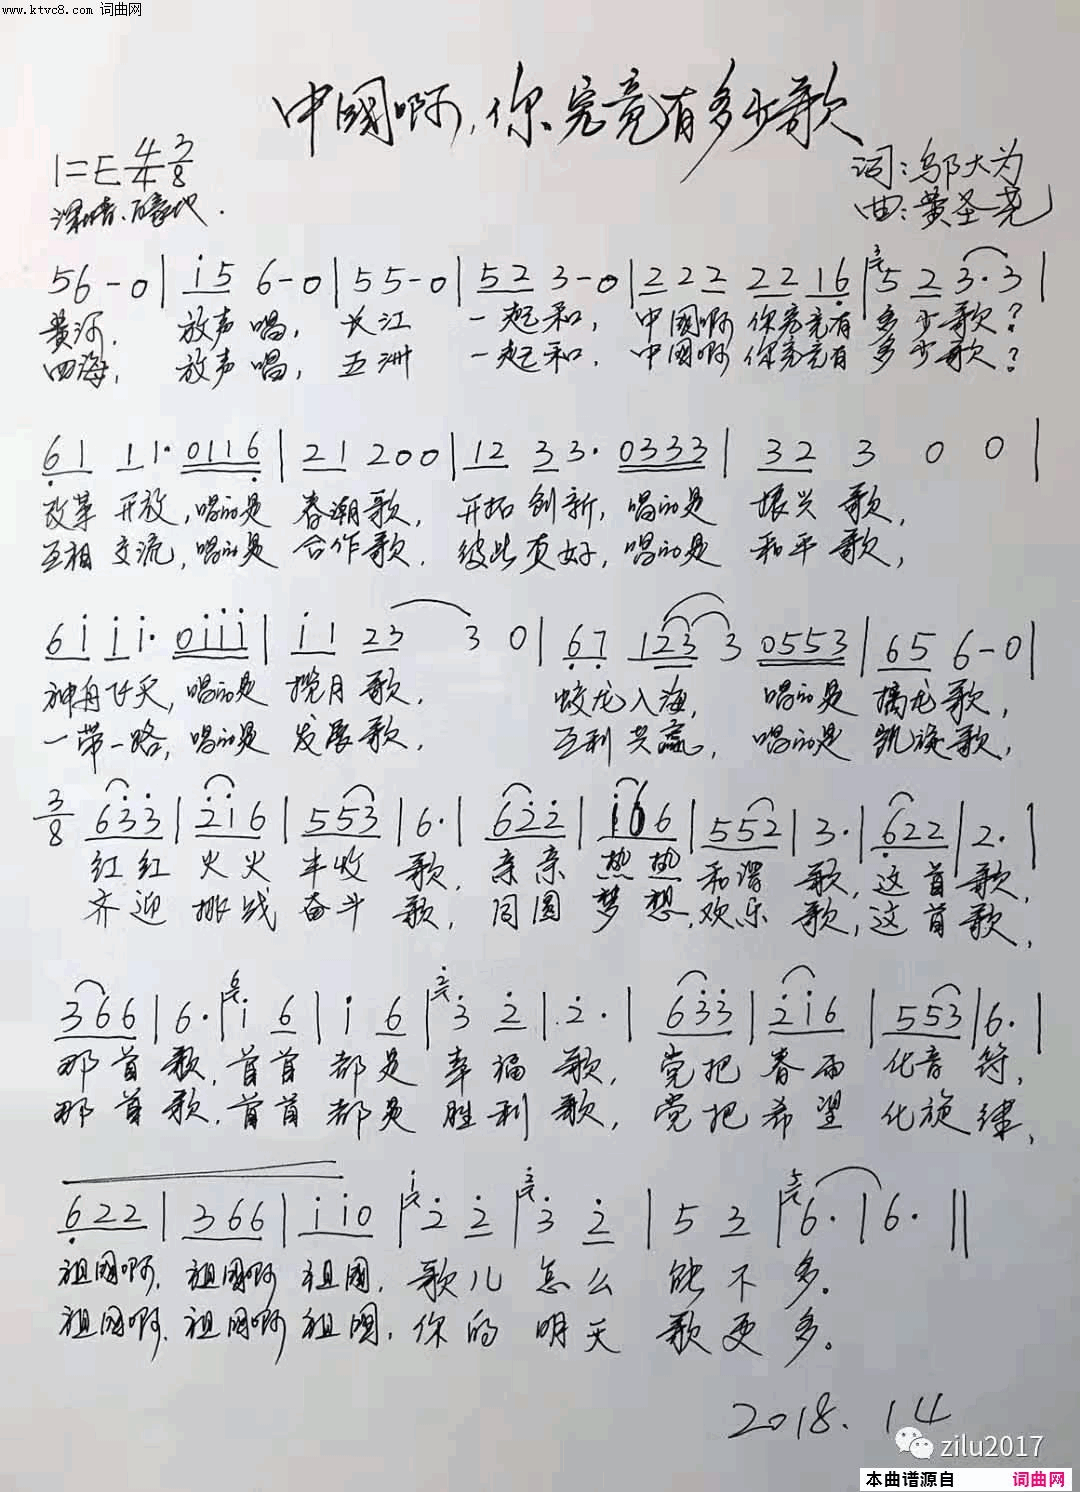 www.ktvc8.com 词曲网
中國啊,你究竟有多少歌
1=E 4/4 3/8
词:邬大为
深情、豪地.
曲:黄圣尧
56-0| i5 6-0|55-0|52 3-0|222 22 16|5 2 3·3|
黄河, 放声唱, 长江 一起和, 中國啊 你究竟有 多少歌?
四海, 放声唱, 五洲 一起和, 中國啊 你究竟有 多少歌?
61 11· 0116|21 200|12 33· 0333|32 3 0 0|
改革 开放,唱的是 春潮歌, 开拓创新, 唱的是 振兴歌,
互相交流,唱的是 合作歌, 彼此友好, 唱的是 和平歌,
6i ii· 0iii|i1 23 3 0|67 123 3 0553|65 6-0|
神舟飞天,唱的是 揽月歌, 蛟龙入海, 唱的是 擒龙歌,
一带一路,唱的是 发展歌, 互利共赢, 唱的是 凯旋歌,
3/8 633|2i6|553|6·|622|i66|552|3·|622|2·|
红红 火火 丰收 歌, 亲亲 热热 和谐 歌,这首歌,
齐迎 挑战 奋斗 歌, 同圆 梦想,欢乐 歌,这首歌,
366|6·|i 6|i 6|3 2|2·|633|2i6|553|6·|
那首歌,首首 都是 幸福 歌, 党把 春雨 化音符,
那首歌,首首 都是 胜利 歌, 党把 希望 化旋律,
622|366|ii0|2 2|3 2|5 3|6·|6·||
祖国啊,祖国啊 祖国, 歌儿 怎么 能不 多。
祖国啊,祖国啊 祖国,你的 明天 歌更 多。
2018.14
zilu2017
本曲谱源自 词曲网